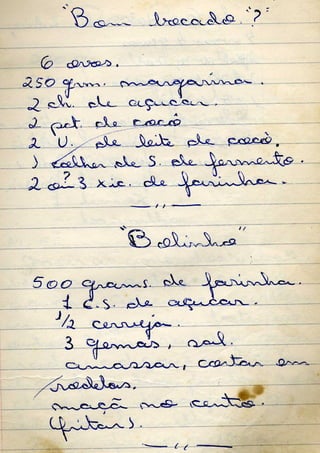 "Bom bocado"?
6 ovos.
250 grm. margarina.
2 ch. de açucar.
2 pct. de cocô
2 V. de leite de cocô.
1 colher de S. de fermento.
2 ou 3 xic. de farinha.
"Bolinho"
500 grams. de farinha.
1 c.s. de açucar.
1/2 cerveja.
3 gemas, sal.
amassar, cortar em
rodelas.
maçã no centro.
(fritar).